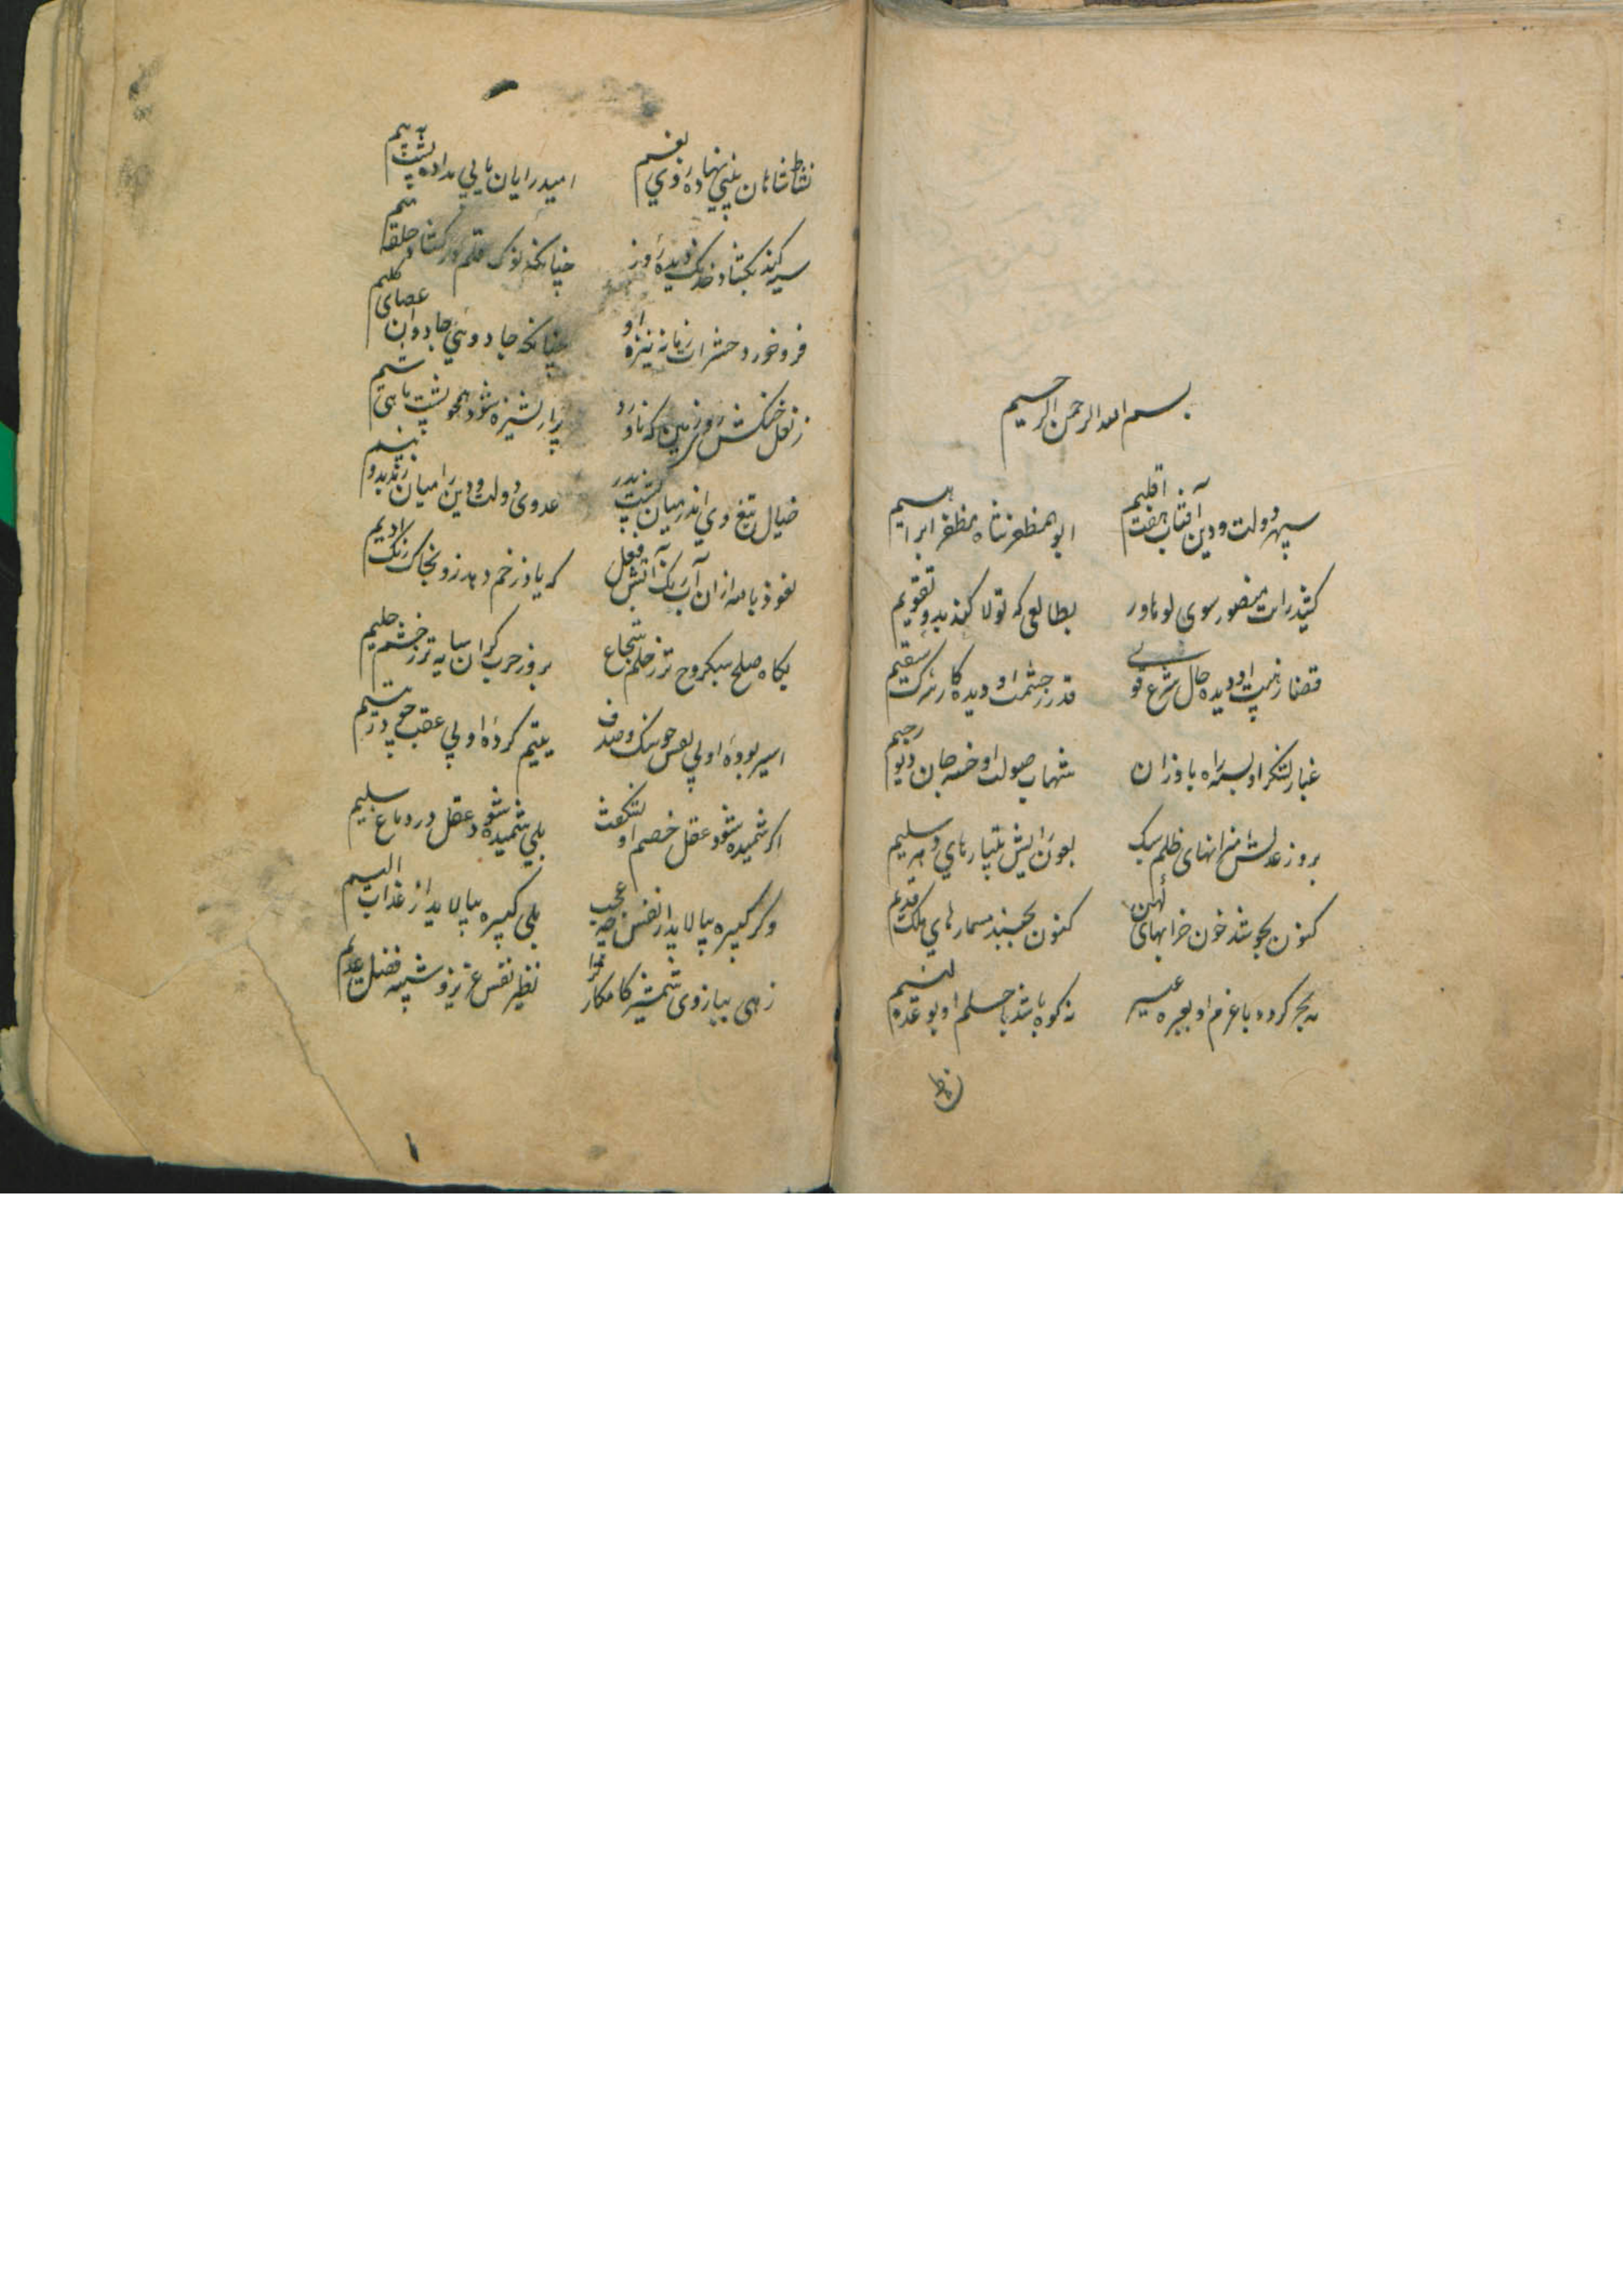 بسم الله الرحمن الرحیم
سپهر دولت و دین آفتاب هفت اقلیم ابوالمظفر شاه مظفر ابراهیم
کشید رایت منصور سوی لوهاور بطالعی که تولا کند بدو تقویم
قضا ز هیبت او دیده حال شرع قوی قدر ز حشمت او دیده کار شرک سقیم
غبار لشکر او بسته راه باد وزان شهاب صولت او خسته جان دیو رجیم
بروز عدلش میزانهای ظلم سبک بعون رایش بیمارهای دهر سلیم
کنون بجوشد خون خرابهای کهن کنون بجنبد مسمارهای ملک قدیم
نه بحر کردد با عزم او بعبره عسیر نه کوه باشد با حلم او بوعده لئیم
نشاط
نشاط شاهان بینی نهاده روی بغم امید رایان یابی بداده پشت به بیم
سیه کند بکشاد خدنک دیده روز چنانکه نوک قلم در کشاد حلقه میم
فرو خورد حشرات زمانه نیزه او چنانکه جادوئی جادوان عصای کلیم
ز نعل خنکش روی زمین که ناورد پر از پشیزه شود همچو پشت ماهی شیم
خیال تیغ وی اندر میان پشت پدر عدوی دولت و دین را میان زند بدو نیم
نعوذ بالله از ان آب رنک آتش فعل که باد زخم دهد زو بخاک رنک ادیم
بکاه صلح سبکروح تر ز حلم شجاع بروز حرب کران سایه تر ز خشم حلیم
اسیر بوده او بی نفس چو سنک و صدف یتیم کرده او بی عقب چو در یتیم
اکر شمیده شود عقل خصم او نشکفت بلی شمیده شود عقل در دماغ سلیم
وکر کبیره بپالاید از نفس چه عجب بلی کبیره بپالاید از عذاب الیم
زهی ببازوی شمشیر کامکار غرا نظیر نفس عزیز و شبیه فضل عدیم